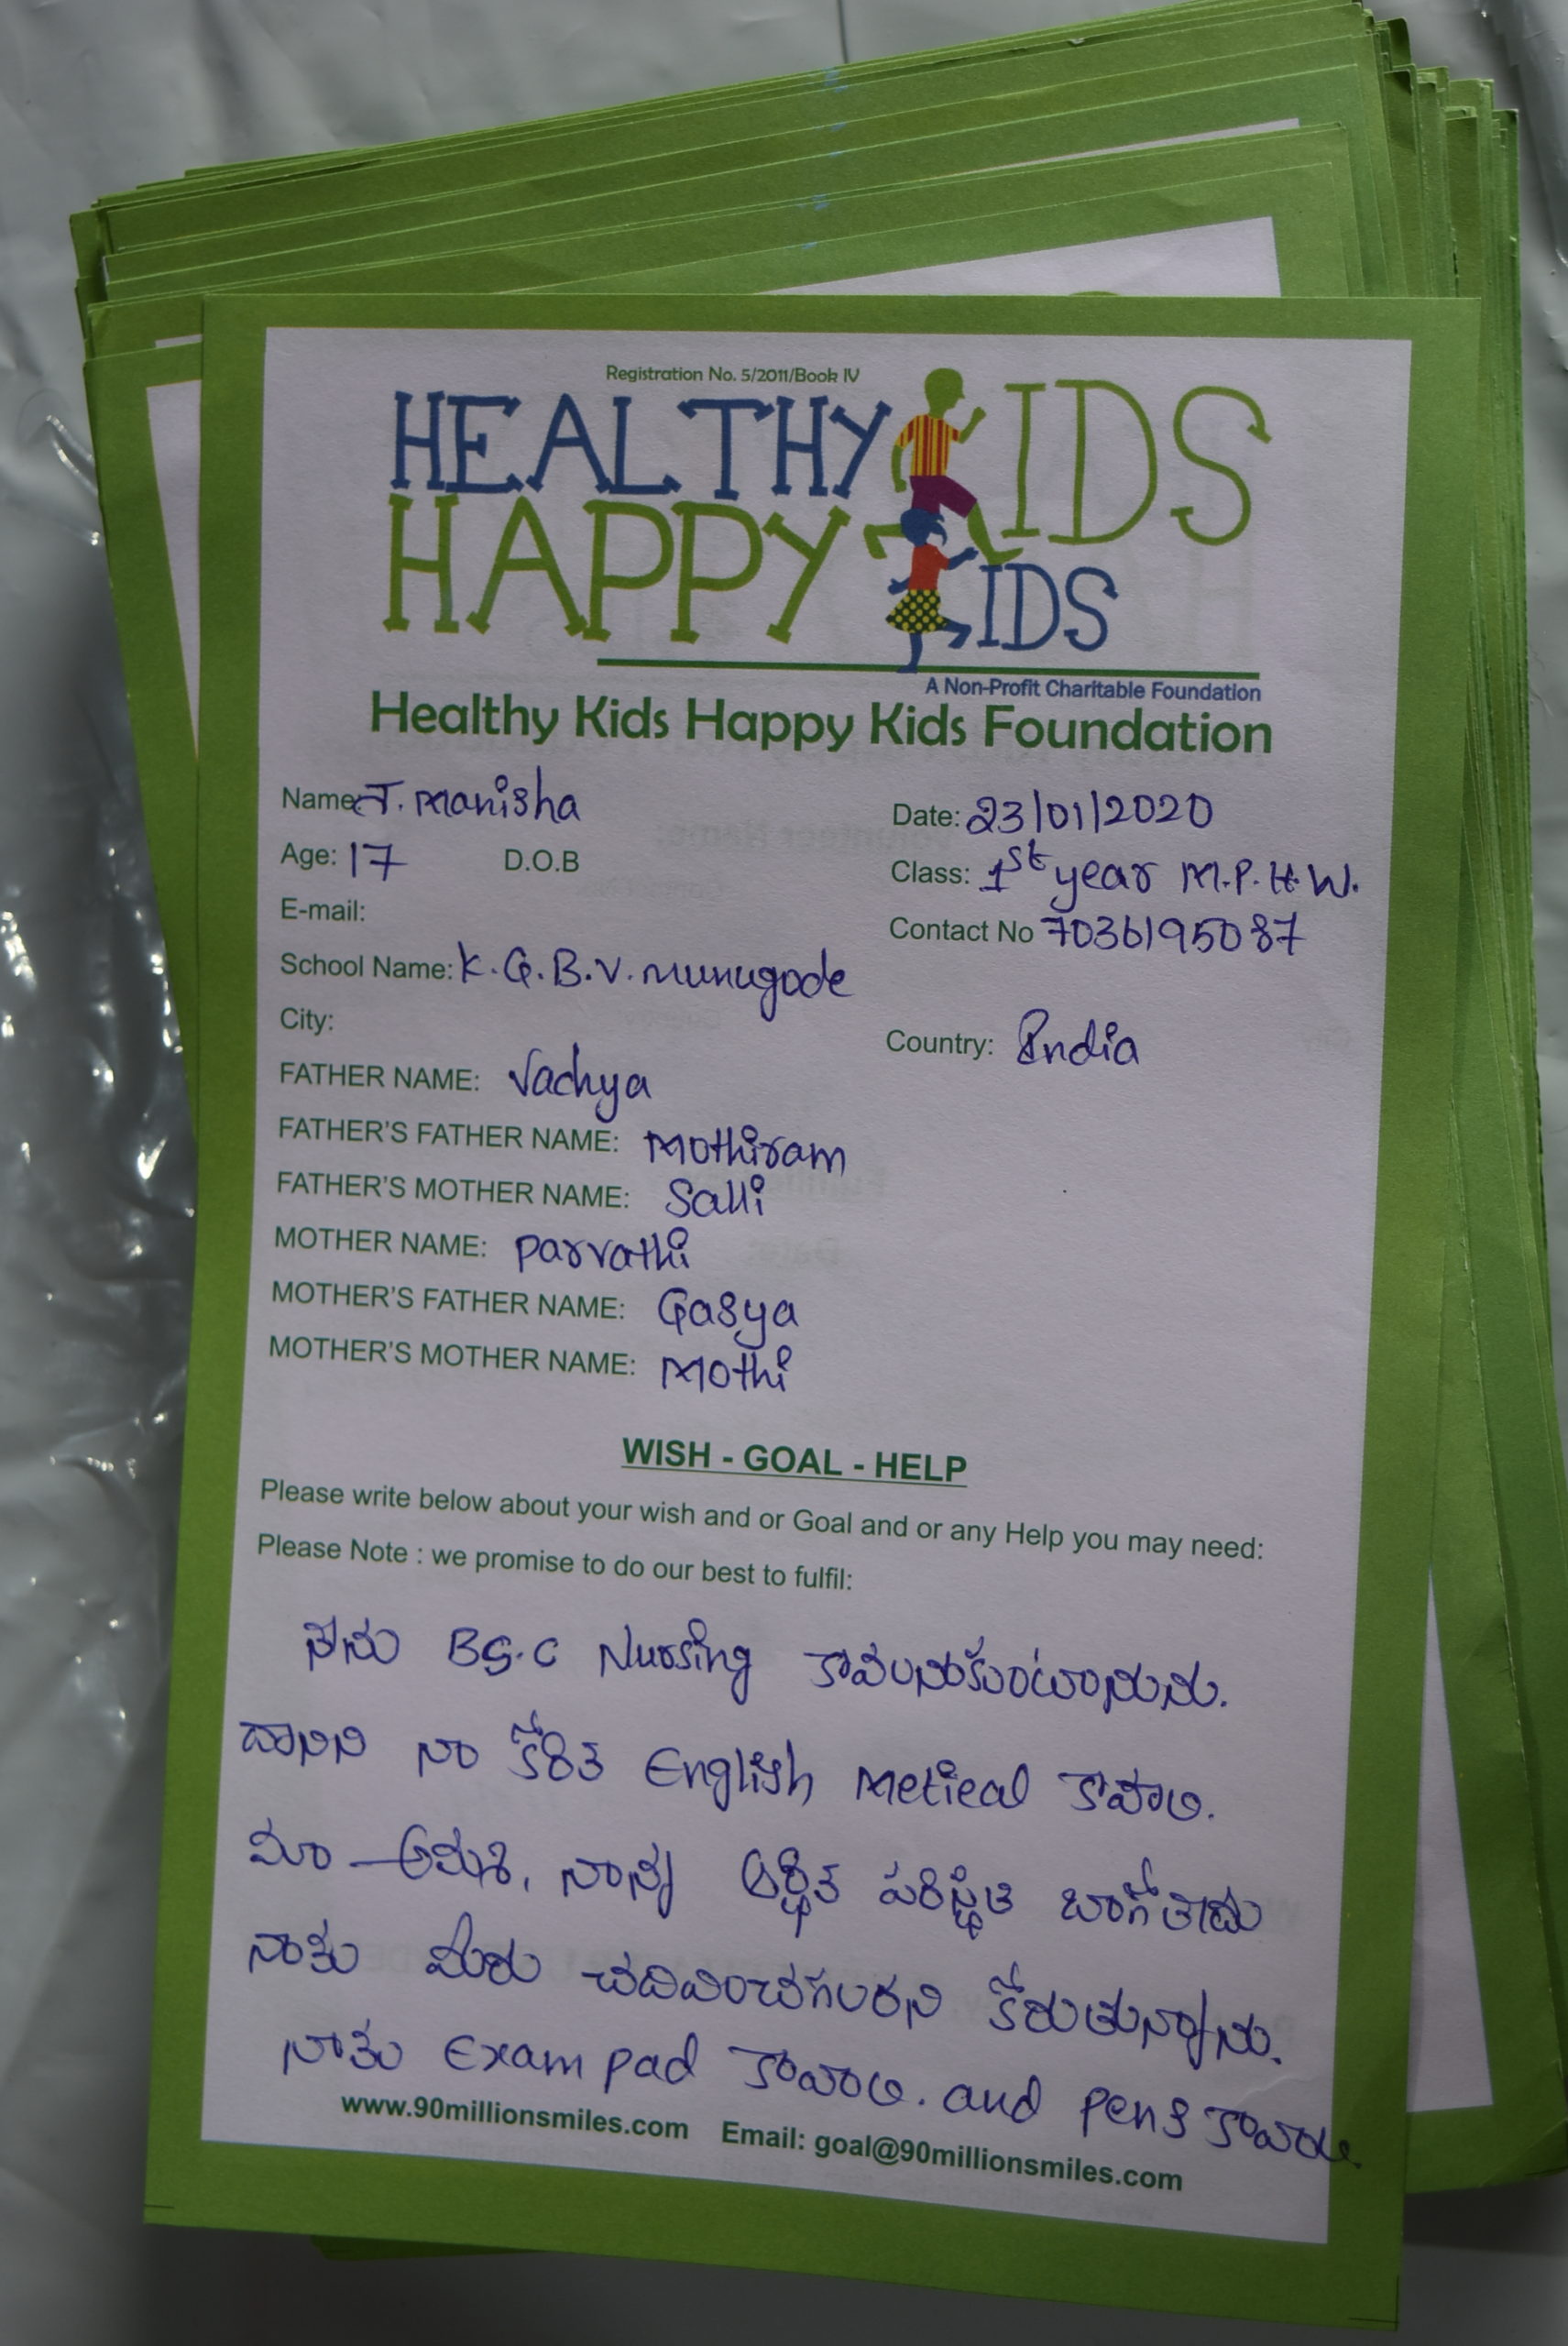 Registration No. 5/2011/Book IV
HEALTHY KIDS
HAPPY KIDS
A Non-Profit Charitable Foundation
Healthy Kids Happy Kids Foundation
Name: J. Manisha Date: 23/01/2020
Age: 17 D.O.B Class: 1st year M.P.H.W.
E-mail: Contact No 7036195087
School Name: K.G.B.V. Munugode
City: Country: India
FATHER NAME: Vachya
FATHER'S FATHER NAME: Mothiram
FATHER'S MOTHER NAME: Salli
MOTHER NAME: Parvathi
MOTHER'S FATHER NAME: Gasya
MOTHER'S MOTHER NAME: Mothi
WISH - GOAL - HELP
Please write below about your wish and or Goal and or any Help you may need:
Please Note : we promise to do our best to fulfil:
నేను BS.C Nursing కావలనుకుంటున్నాను.
దానిని నా కోరిక English Metical కావాలి.
మా అమ్మ, నాన్న ఆర్థిక పరిస్థితి బాగోలేదు
నాకు మీరు చదివించగలరని కోరుతున్నాను.
నాకు Exam pad కావాలి. and pens కావాలి.
www.90millionsmiles.com Email: goal@90millionsmiles.com